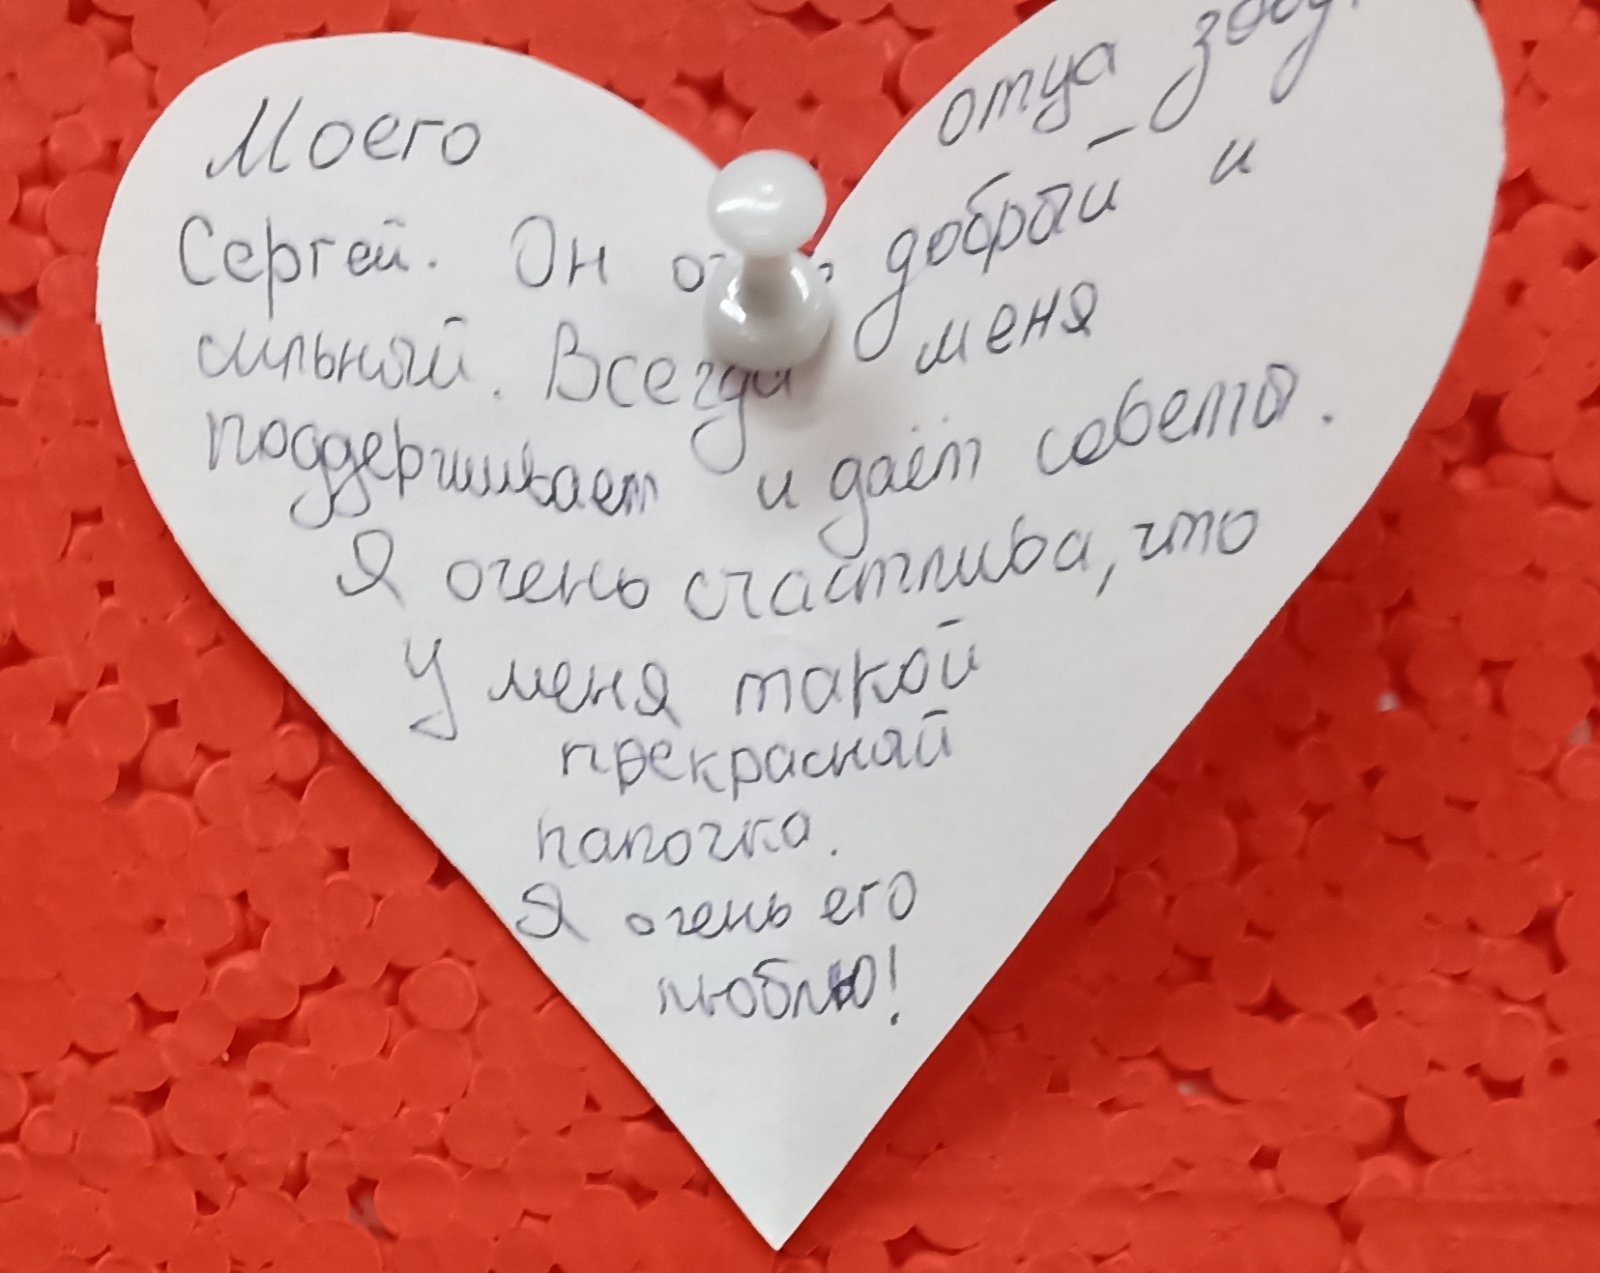 Моего отца
Сергей. Он добрый и
сильный. Всегда меня
поддерживает и даёт советы.
Я очень счастлива, что
у меня такой
прекрасный
папочка.
Я очень его
люблю!